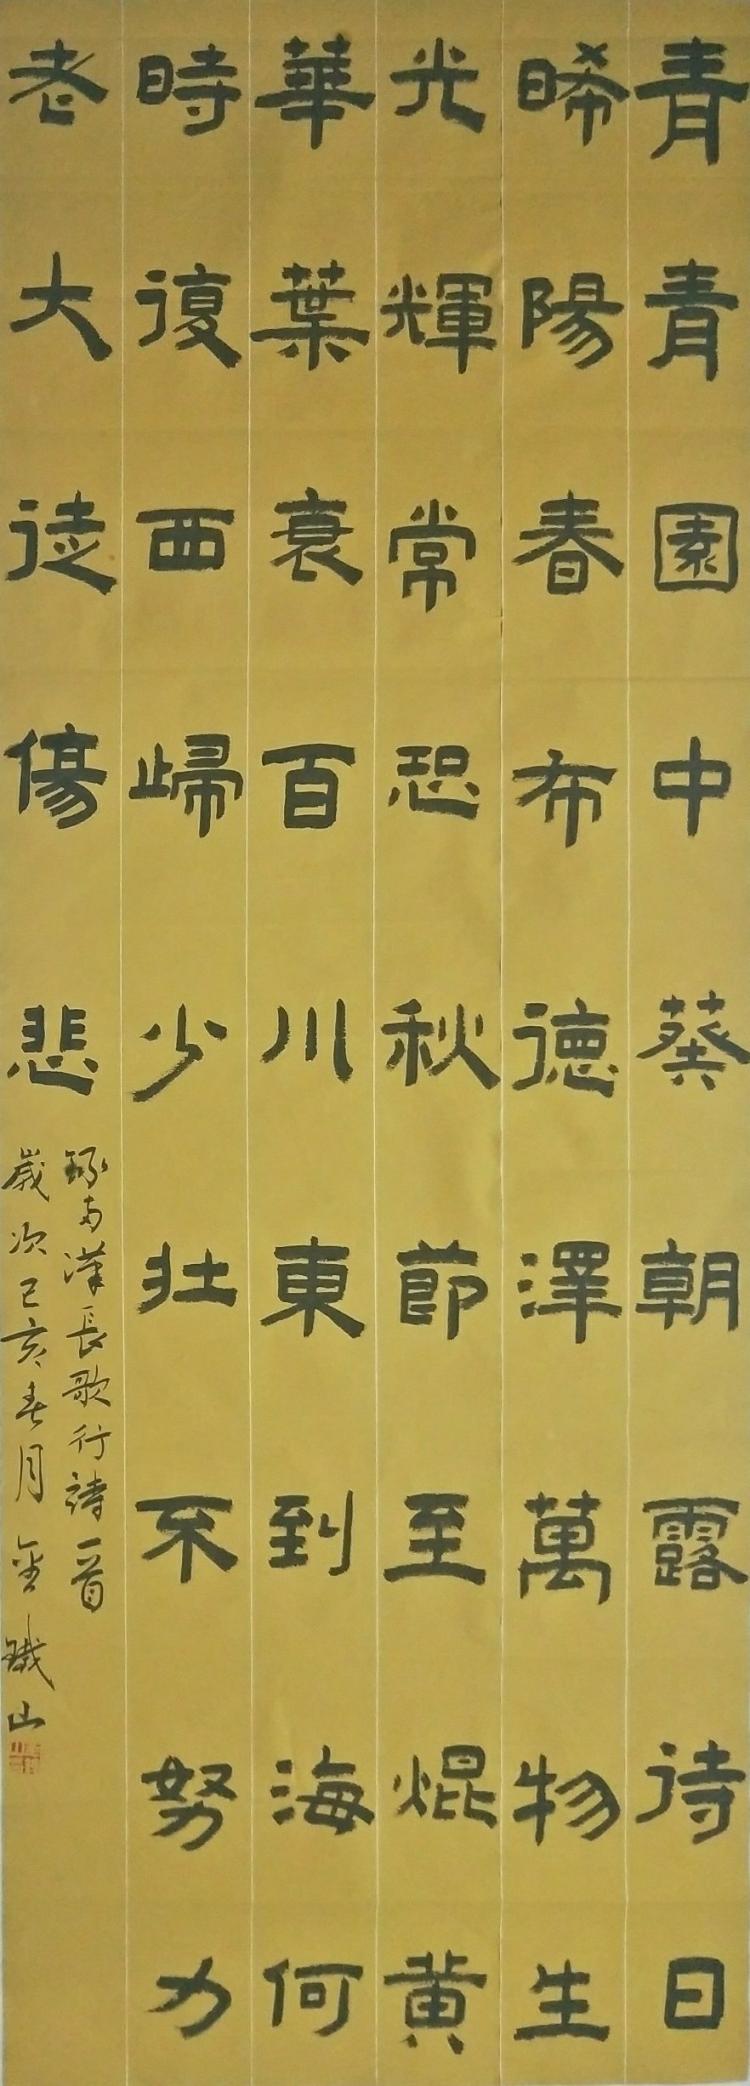 青青園中葵朝露待日
晞陽春布德澤萬物生
光輝常恐秋節至焜黃
華葉衰百川東到海何
時復西歸少壯不努力
老大徒傷悲
錄兩漢長歌行詩一首
歲次己亥春月金鐵山